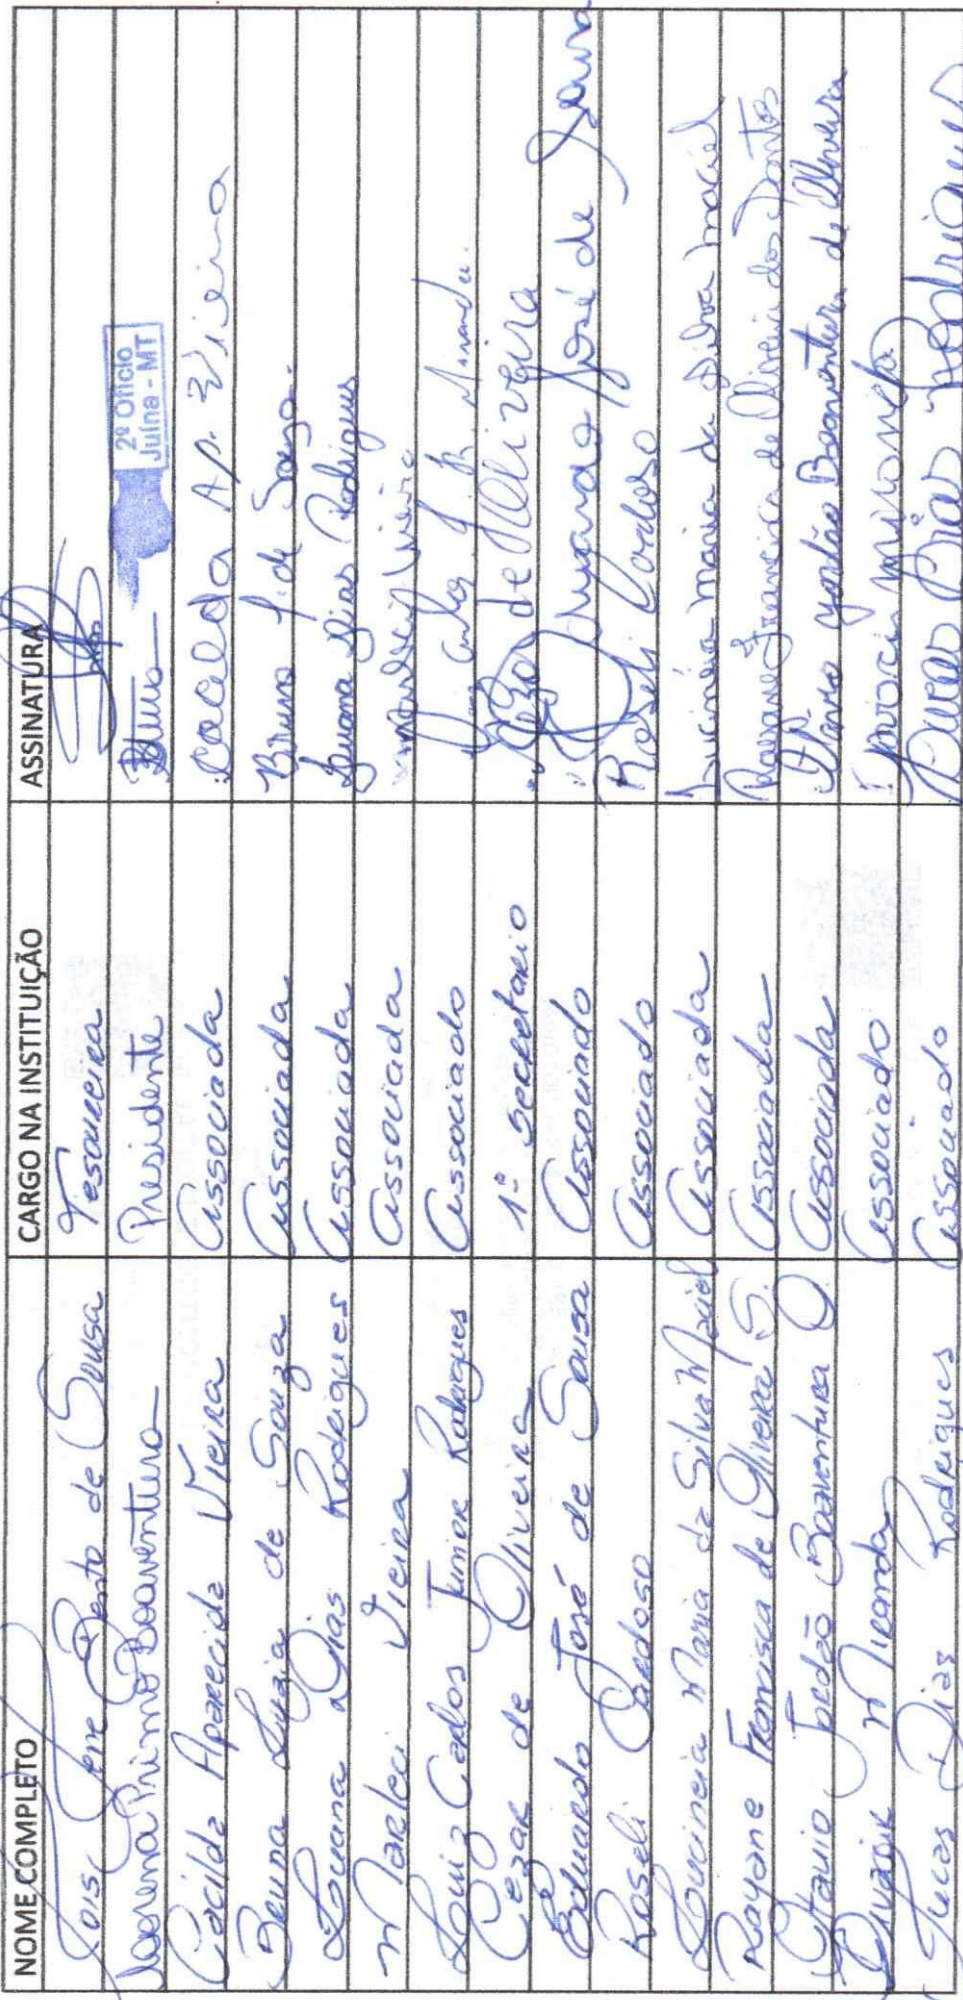 NOME COMPLETO CARGO NA INSTITUIÇÃO ASSINATURA
Jane Bento de Sousa Tesoureira
Primo Boaventura Presidente 2º Ofício Juína - MT
Cacilda Aparecida Vieira Associada Cacilda Ap. Vieira
Bruna Luzia de Souza Associada Bruna l. de Souza.
Louana Dias Rodrigues Associada Luana Dias Rodrigues
Marleci Vieira Associada Marleci Vieira
Luiz Carlos Junior Rodrigues Associado
Cezar de Oliveira 1º Secretario Cezar de Oliveira
Eduardo José de Sousa Associado Eduardo José de Sousa
Roseli Cardoso Associado Roseli Cardoso
Lucineia Maria da Silva Maciel Associada Lucinéia maria da Silva maciel
Rayane Francisca de Oliveira S. Associada Rayane Francisca de Oliveira dos Santos
Jordão Boaventura O. Associada Jordão Boaventura de Oliveira
Miranda Associado
Lucas Dias Rodrigues Associado Lucas Dias Rodrigues